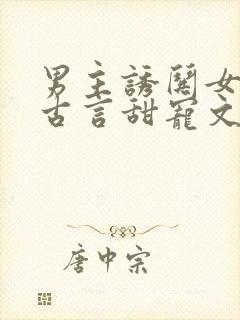 男主誘闋女
古言甜寵文
唐中宗